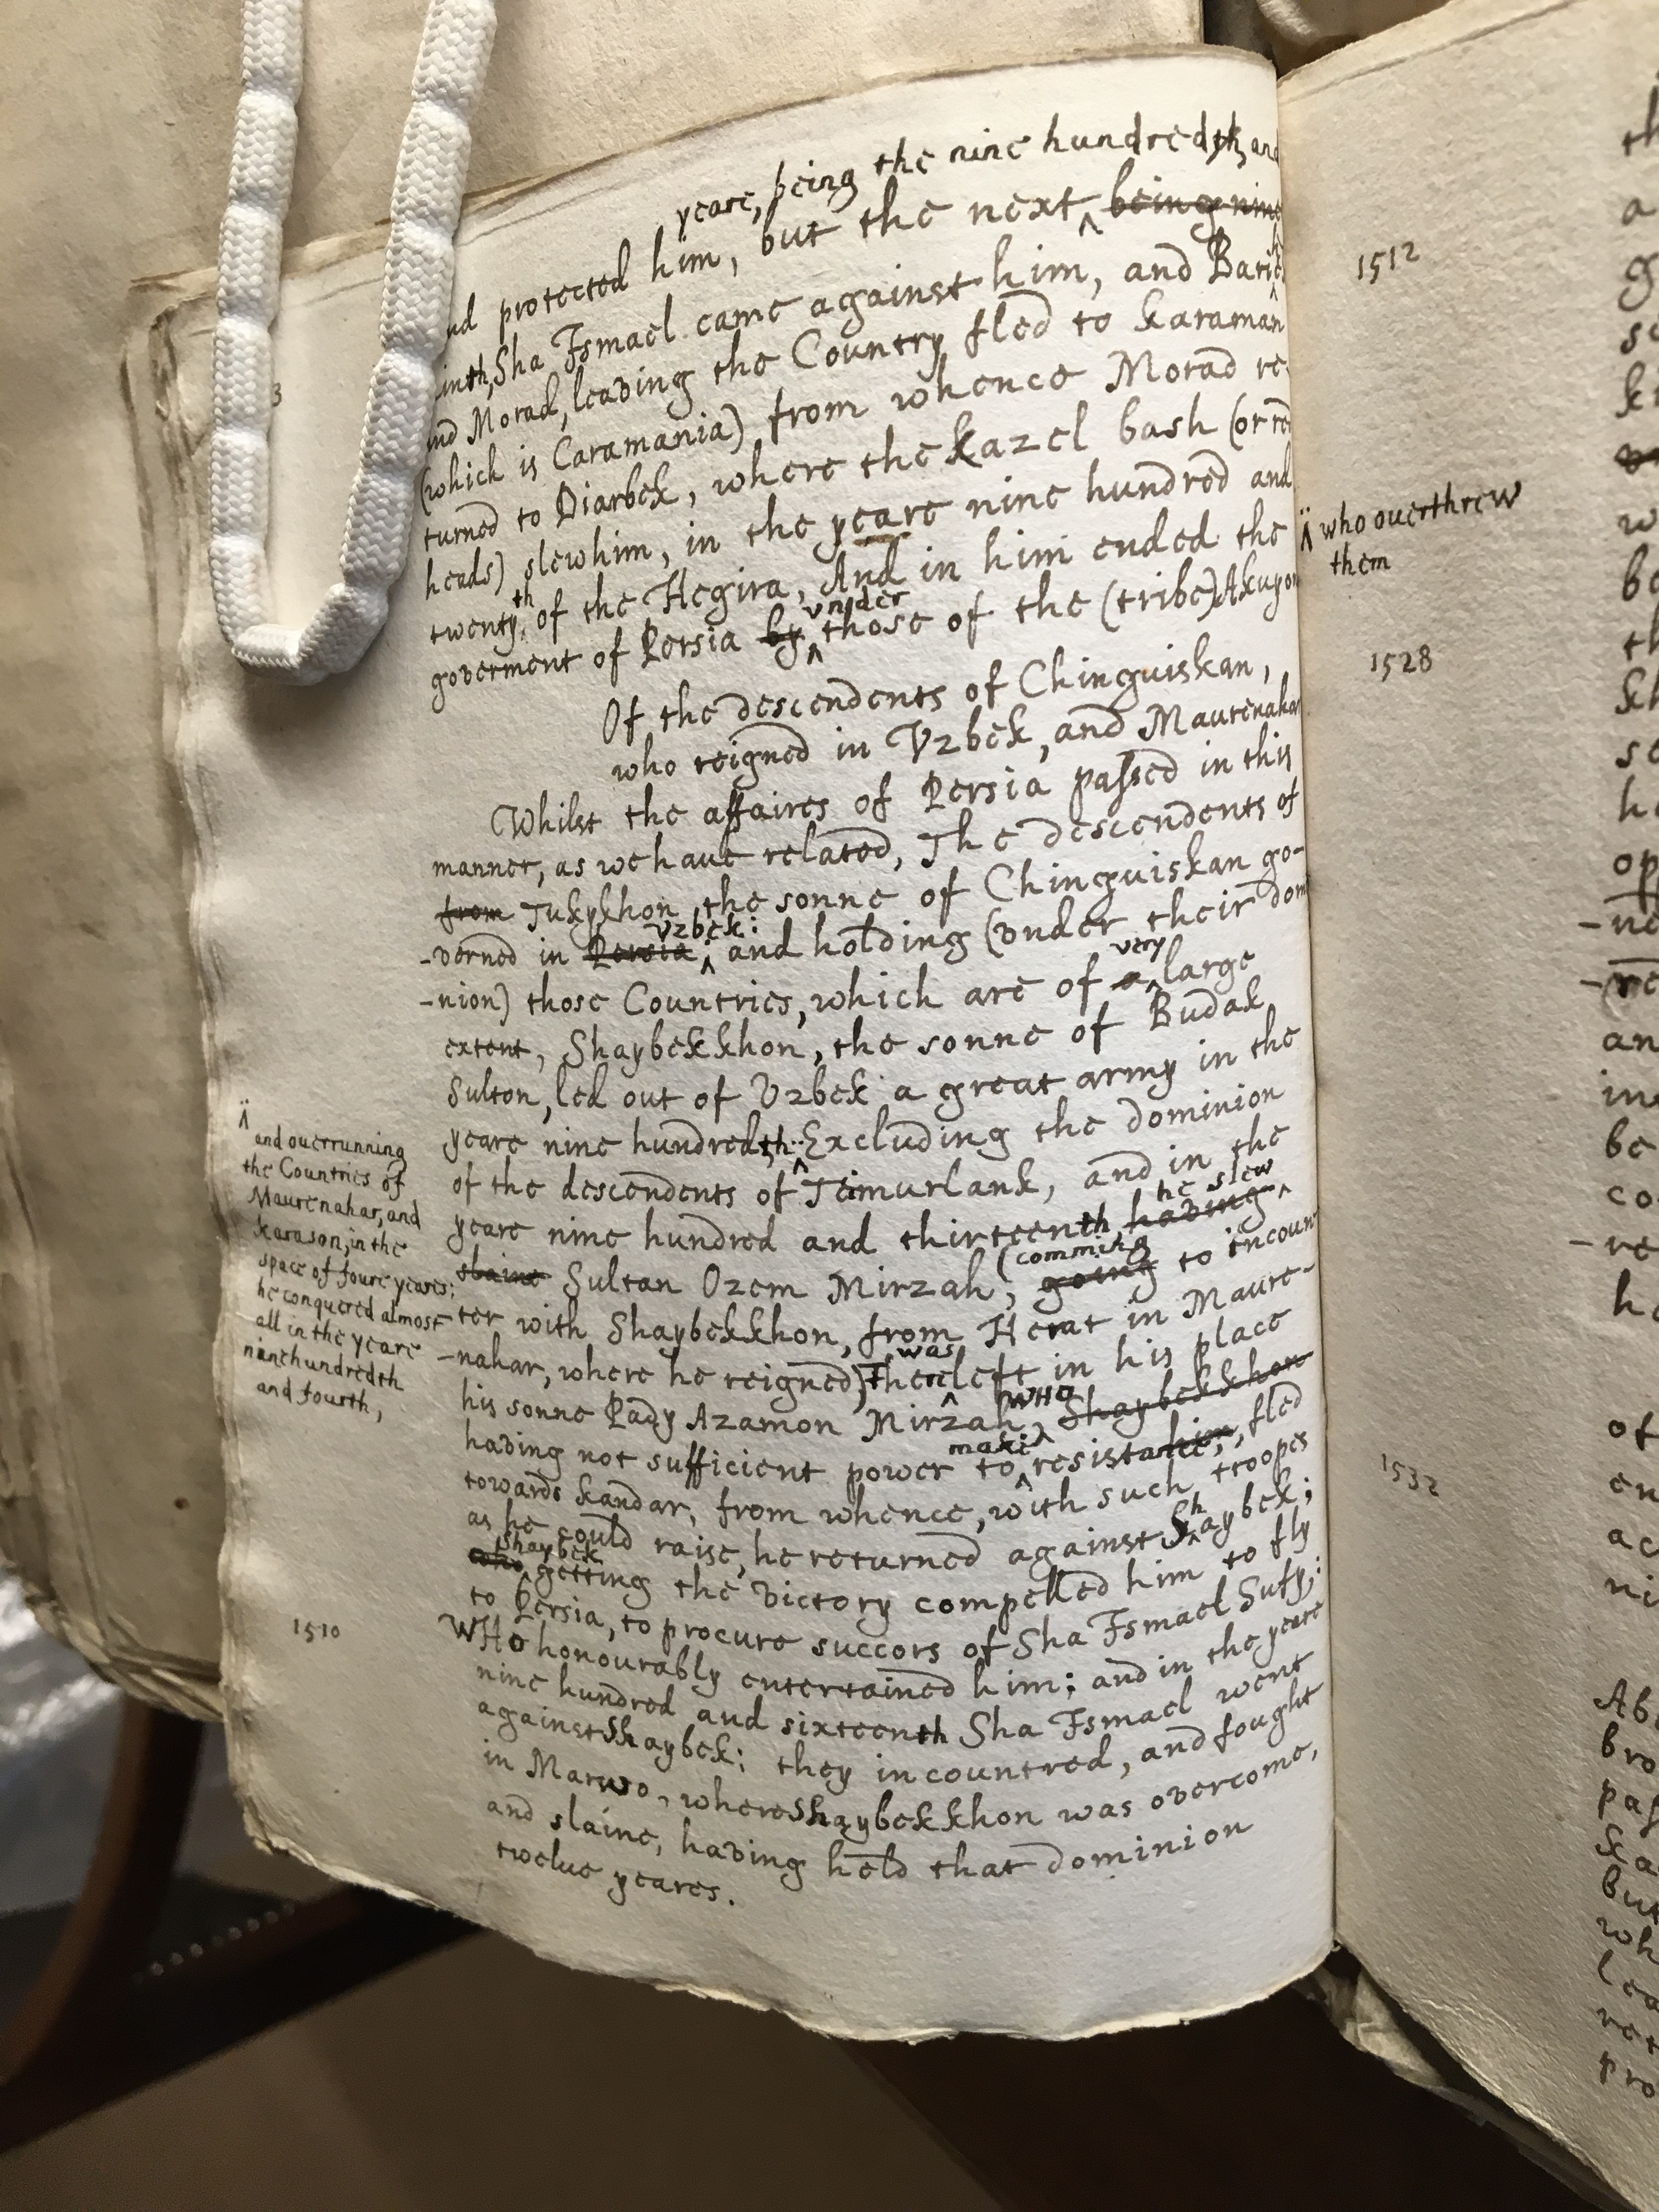 yeare, being the nine hundredth, and
nd protected him, but the next, being nine
inth, Sha Ismael came against him, and Bari
and Morad, leaving the Country fled to karaman
(which is Caramania) from whence Morad re
turned to Diarbek, where the kazel bash (or red
heads) slew him, in the yeare nine hundred and
twentyth of the Hegira, And in him ended the
goverment of Persia by vnder those of the (tribe) Akuyon
Of the descendents of Chinguiskan,
who reigned in Vzbek, and Maurenahar
Whilst the affaires of Persia passed in this
manner, as we haue related, The descendents of
from Tukykhon, the sonne of Chinguiskan go-
-verned in Persia Vzbek: and holding (vnder their domi
-nion) those Countries, which are of a very large
extent, Shaybekkhon, the sonne of Budak
Sulton, led out of Vzbek a great army in the
yeare nine hundredth Excluding the dominion
of the descendents of Teimurlank, and in the
yeare nine hundred and thirteenth having he slew
slaine Sultan Ozem Mirzah, going (comming to incoun
-ter with Shaybekkhon, from Herat in Maure-
-nahar, where he reigned) There was left in his place
his sonne Pady Azamon Mirzah, WHO Shaybekkhon
having not sufficient power to make resistance, fled
towards kandar, from whence, with such troopes
as he could raise, he returned against Shaybek;
who Shaybek getting the victory compelled him to fly
to Persia, to procure succors of Sha Ismael Sufy;
WHO honourably entertained him; and in the yeare
nine hundred and sixteenth Sha Ismael went
against Shaybek; they incountred, and fought
in Maruo, where Shaybekkhon was overcome,
and slaine, having held that dominion
twelue yeares.
and ouerrunning
the Countries of
Maurenahar, and
karason, in the
space of foure yeares;
he conquered almost
all in the yeare
nine hundredth
and fourth,
1510
3
1512
who ouerthrew
them
1528
1532